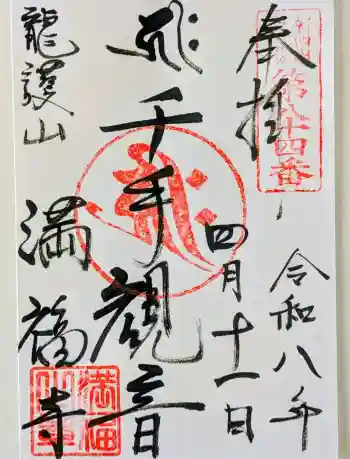 奉拝
第八十四番
令和八年
四月十一日
千手観音
龍護山
満福寺
満福